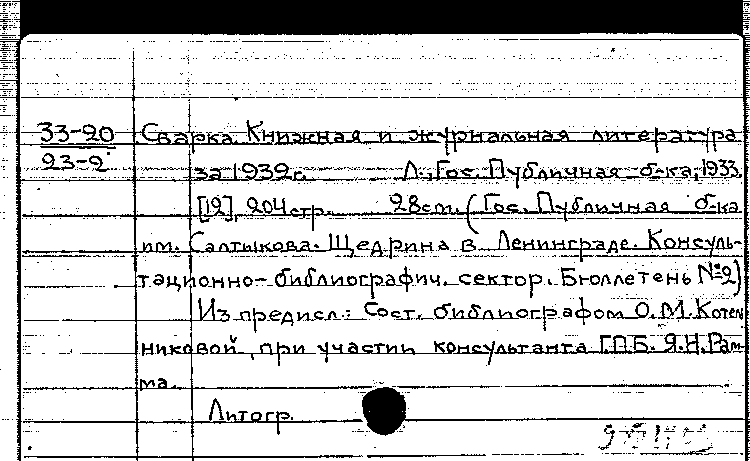 33-20 Сварка. Книжная и журнальная литература
23-2 за 1932г. Л., Гос. Публичная б-ка, 1933.
[12], 204 стр. 28см. (Гос. Публичная б-ка
им. Салтыкова-Щедрина в Ленинграде. Консуль-
тационно-библиографич. сектор. Бюллетень №2)
Из предисл.: Сост. библиографом О.М. Котен
никовой, при участии консультанта Г.П.Б. Я.Н. Рам-
ма.
Литогр.